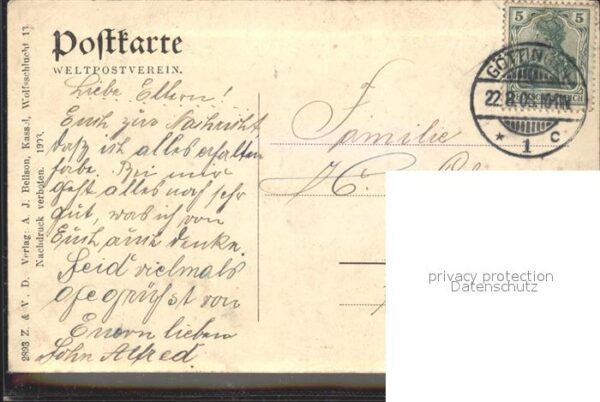 Postkarte
WELTPOSTVEREIN.
2893 Z. & V. D. Verlag: A. J. Bellson, Kassel, Wolfsschlucht 13
Nachdruck verboten. 1903.
Liebe Eltern!
Euch zur Nachricht
daß ich alles erhalten
habe. Bei mir
geht alles noch sehr
gut, was ich von
Euch auch denke.
Seid vielmals
gegrüßt von
Euern lieben
Sohn Alfred
5 5
GÖTTINGEN
22.8.
* 1 C
Familie
H.
privacy protection
Datenschutz